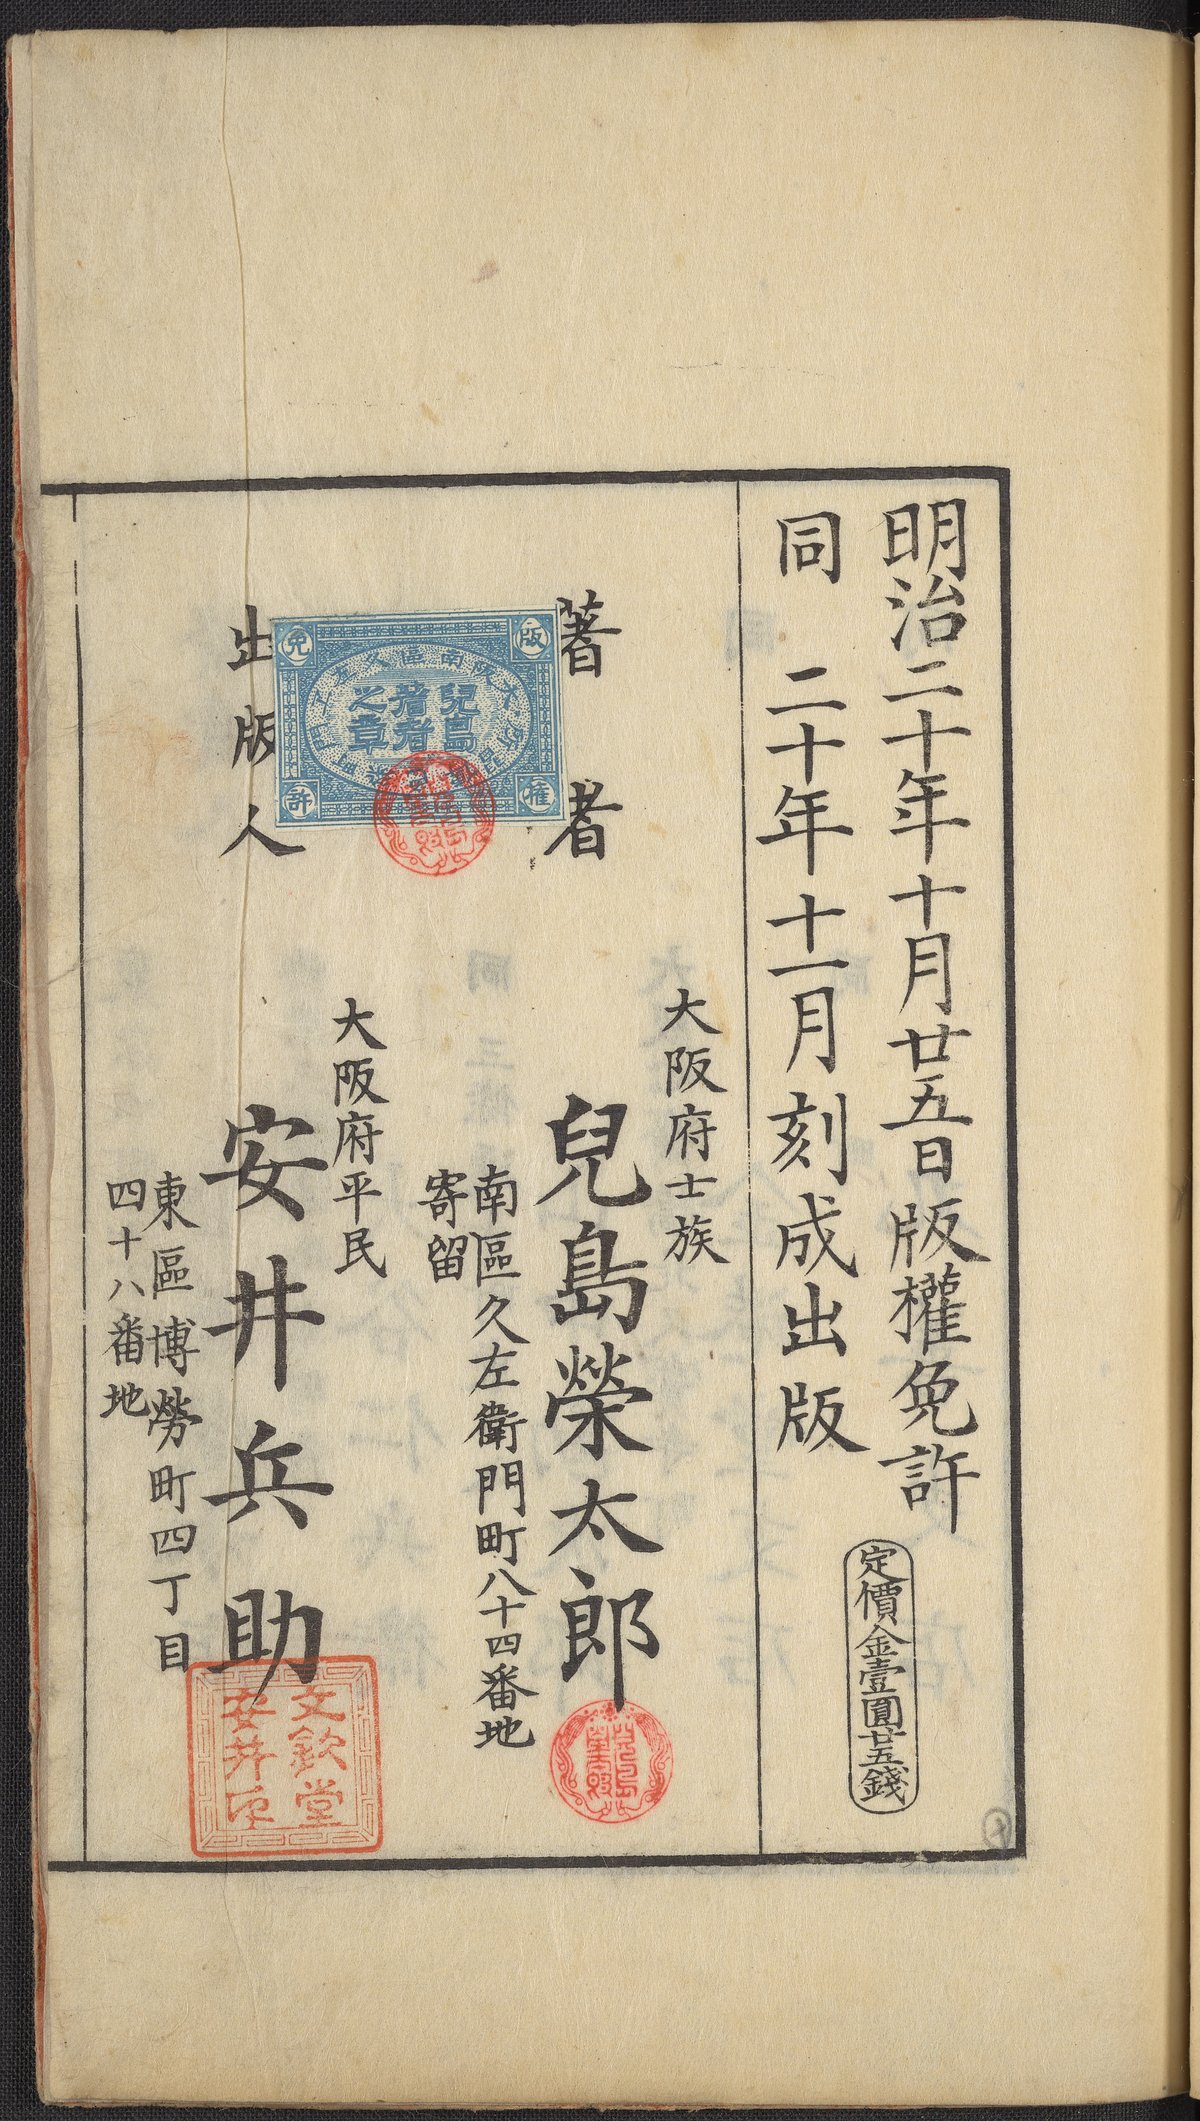 明治二十年十月廿五日版權免許
同 二十年十一月刻成出版
定價金壹圓廿五錢
著者
大阪府士族
兒島榮太郎
南區久左衛門町八十四番地
寄留
版權免許
兒島
著者
之章
出版人
大阪府平民
安井兵助
東區博勞町四丁目
四十八番地
文欽堂
安井印